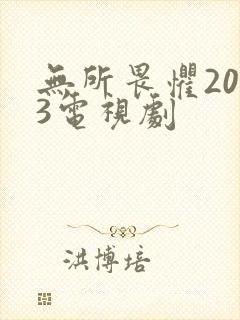 無所畏懼20
3電視劇
洪博培